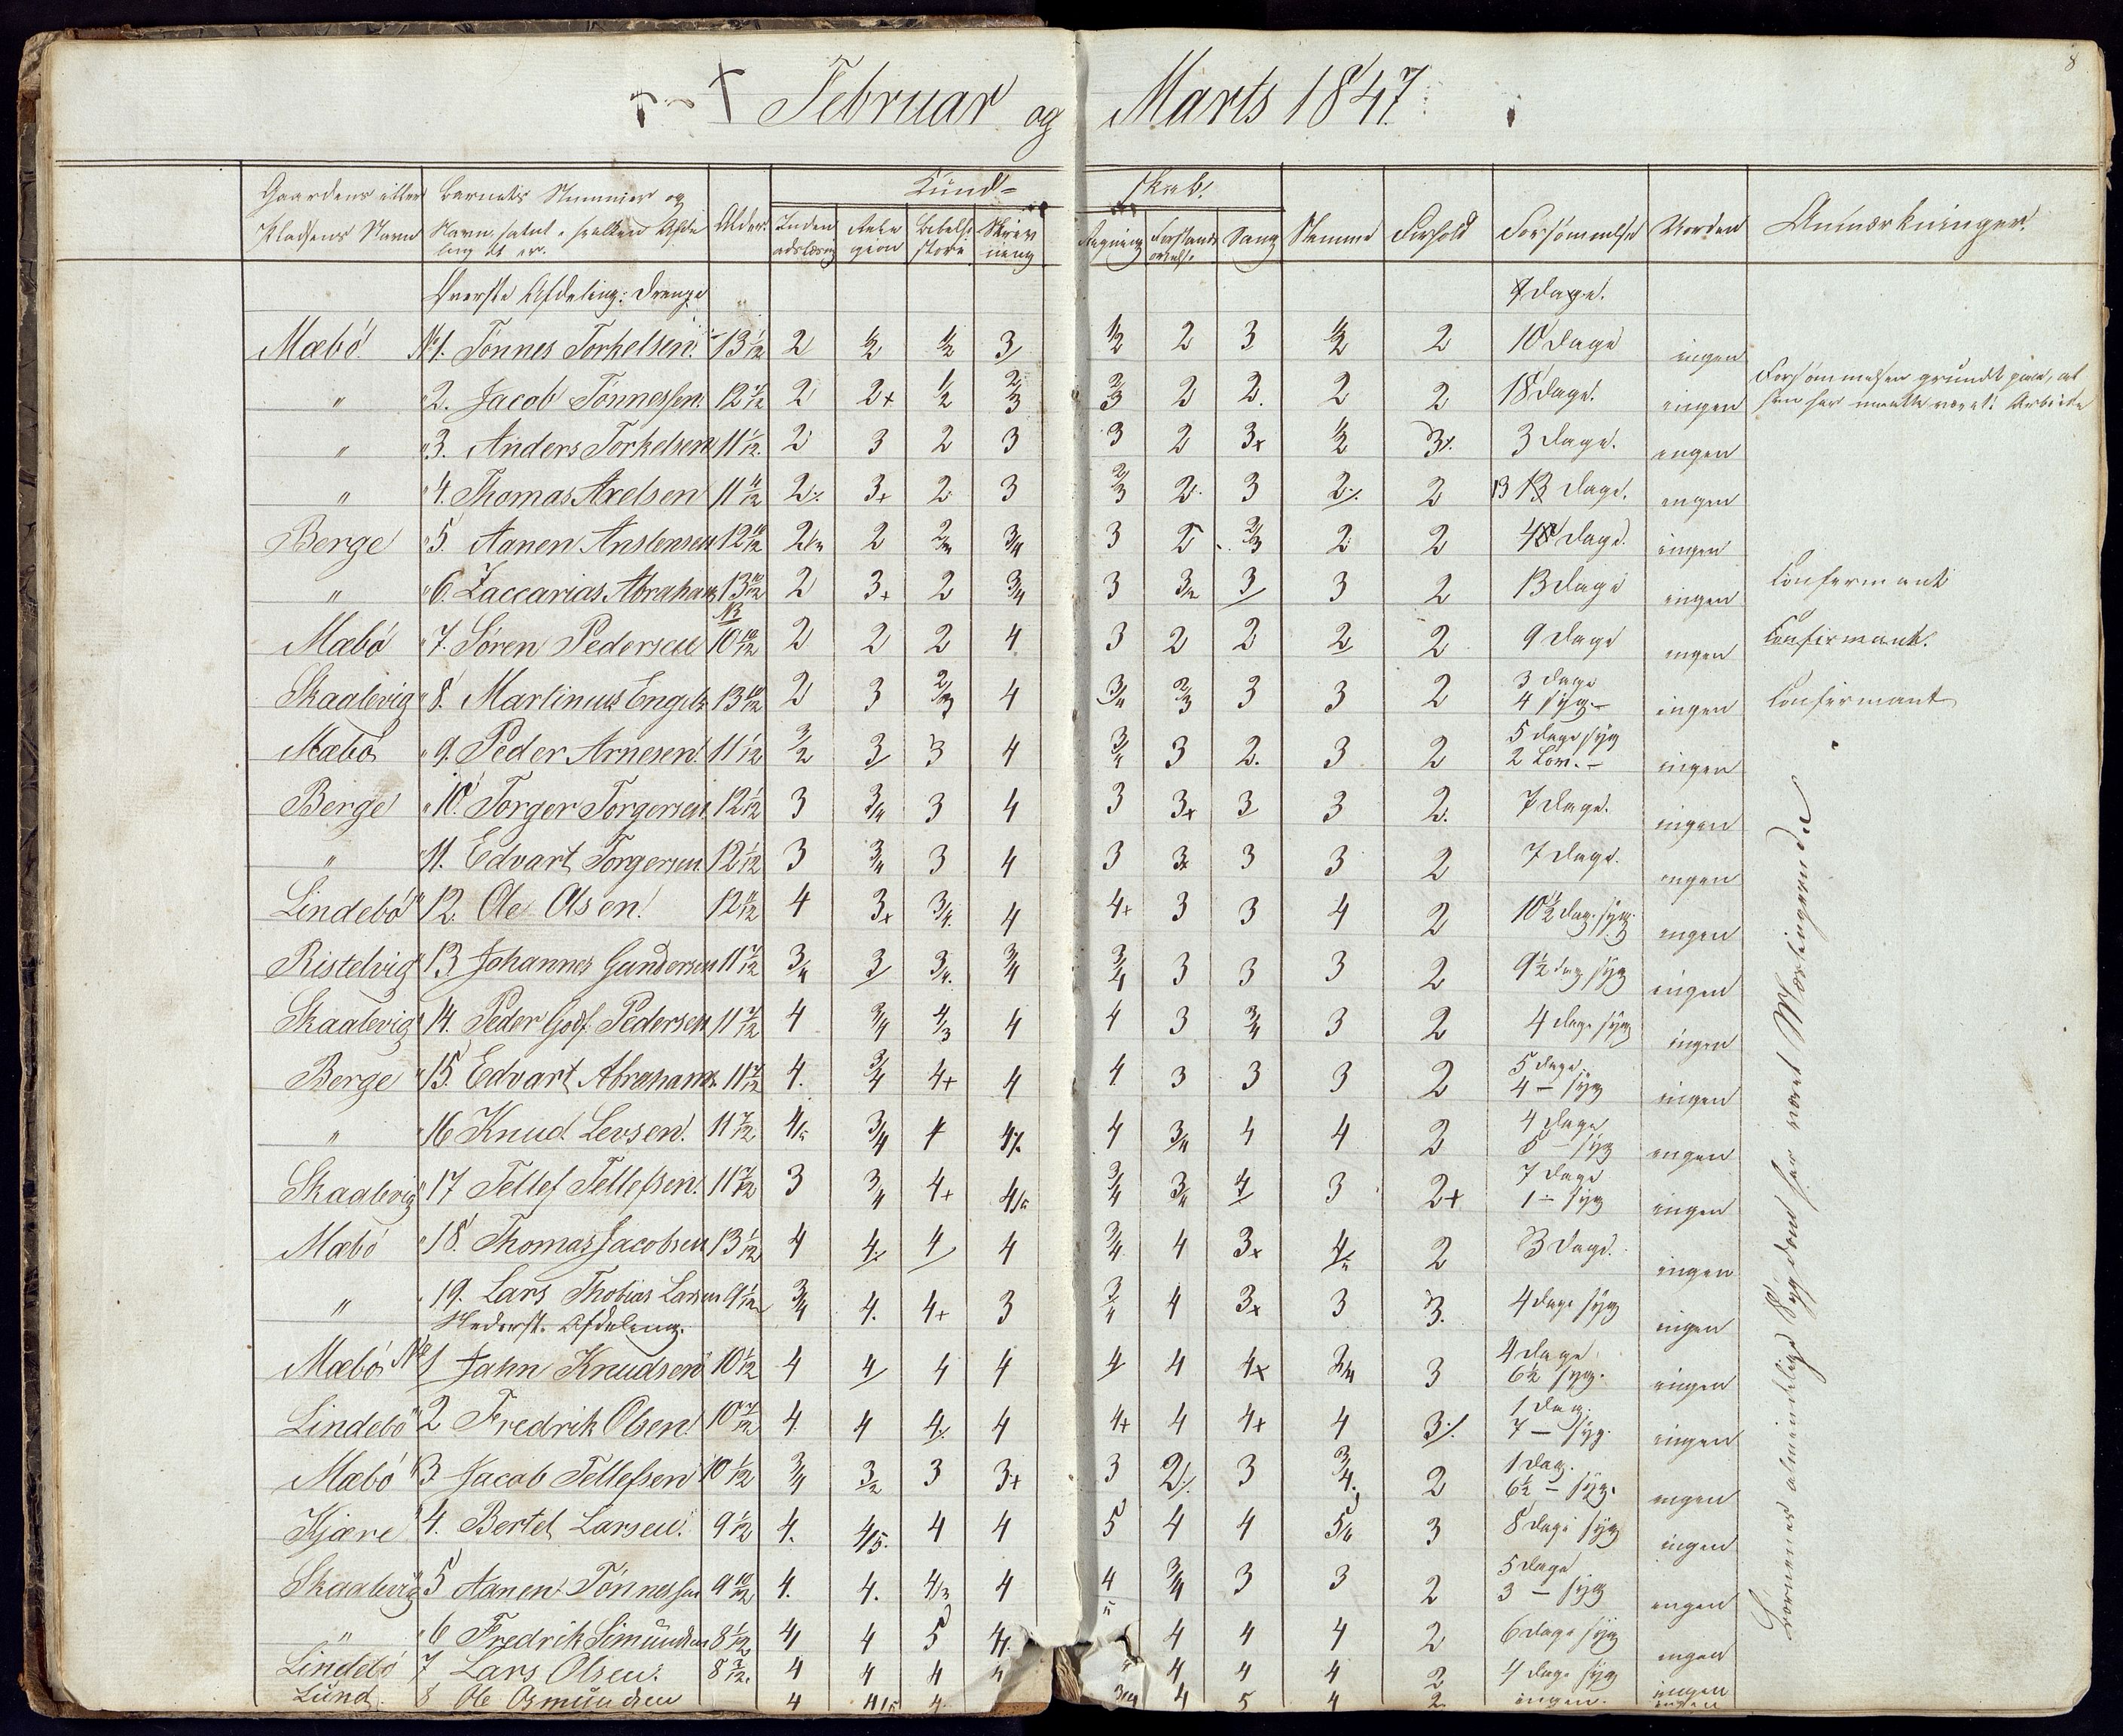 8
Februar og Marts 1847.
Gaardens eller Pladsens Navn | Barnets Nummer og Navn samt i hvilken Afdeling det er. | Alder. | Kund= | skab. | Stemme | Forhold | Forsømmelse | Anmærkninger.
Inden adslæsng | Reli gion | Bibelhi storie | Skriv ning | Regning | Forstands øvelse | Sang
Øverste Afdeling: Drenge
Mæbø No 1. Tønnes Torkelsen. 13 1/12 2 1/2 1/2 3 1/2 2 3 1/2 2 10 Dage ingen
" " 2. Jacob Tønnessen. 12 2 2+ 1/2 2/3 2/3 2 2. 2 2 18 Dage. ingen Forsømmelsen grundt paa, at han har maatte været i Arbeide
" " 3. Anders Torkelsen 11 2 3 2 3 3 2 3+ 1/2 3 3 Dage. ingen
" " 4. Thomas Axelsen 11 2 3+ 2 3 2/3 2 3 2 2 13 Dage. ingen
Berge " 5. Aanen Anstensen 12 2 2 2/3 3/4 3 2 2/3 2 2 Dage. ingen
" " 6. Zaccarias Abraham 13 2 3+ 2 3/4 3 3 3 2 13 Dage ingen Confirmant
Mæbø " 7. Søren Pedersen 10 2 2 2 4 3 2 2 2 2 9 Dage ingen Confirmant.
Skaalevig " 8. Martinus Engels 13 2 3 2/3 4 3/4 2/3 3 3 2 3 Dage 4 syg - ingen Confirmant
Mæbø " 9. Peder Arnesen. 11 1/12 3/2 3 3 4 3/4 3 2. 3 2 5 Dage syg 2 Lov. - ingen
Berge " 10. Torger Torgersen 12 1/12 3 3/4 3 4 3 3+ 3 3 2. 7 Dage. ingen
" 11. Edvart Torgersen 12 1/12 3 3/4 3 4 3 3+ 3 3 2 7 Dage. ingen
Lindebø " 12. Ole Olsen. 12 4 3+ 3/4 4 4+ 3 3 4 2 10 1/2 Dag. syg. ingen
Ristelvig " 13 Johannes Gundersen 11 3/4 3 3/4 3/4 3/4 3 3 3 2 9 1/2 Dag syg ingen
Skaalevig " 14. Peder Godf. Pedersen 11 4 3/4 4/3 4 4 3 3/4 3 2 4 Dage syg ingen
Berge " 15. Edvart Abrahams. 11 4. 3/4 4+ 4 4 3 3 3 2 5 Dage. 4 - syg ingen
" " 16 Knud Levsen. 11 3/4 4 4 3/4 4 4 2 4 Dage - syg ingen
Skaalevig " 17 Tellef Tellefsen. 11 3 3/4 4+ 3/4 3/4 4 3 2+ 7 Dage 1 - syg ingen
Mæbø " 18. Thomas Jacobsen 13 1/12 4 4 4 4 3/4 4 3+ 2 3 Dage. ingen
" " 19. Lars Thobias Larsen 9 3/4 4. 4+ 3 3/4 4 3+ 3 3. 4 Dage syg ingen
Nederst. Afdeling.
Mæbø No 1 Jahn Knudsen 10 1/12 4 4 4 4 4 4 4+ 3/4 3 4 Dage. 6 1/2 syg. ingen
Lindebø " 2 Fredrik Olsen. 10 4. 4 4 4 4+ 4 4+ 4 3 1 Dag. 7 - syg. ingen
Mæbø " 3. Jacob Tellefsen 10 1/12 3/4 3/2 3 3+ 3 2 3 3/4. 2 1 Dag. 6 1/2 - syg. ingen
Kjære " 4. Bertel Larsen. 9 1/12 4. 4/5. 4 4 5 4 4 3 8 Dage syg ingen
Skaalevig " 5 Aanen Tønnessen 9 10/12 4. 4. 4/3 4 4 3/4 3 3 2 5 Dage 3 - syg ingen
" " 6 Fredrik Simundsen 8 4 4 5 4 4 4 4 2 6 Dage syg ingen
Lindebø 7 Lars Olsen. 8 4 4 4 4 4 4 4 2 4 Dage syg ingen
Lund 8 Ole Osmundsen 4 4/5 4. 3/4 4 5 4 2 ingen. ingen
Børnenes almindelige Sygdom har været Mæslingerne